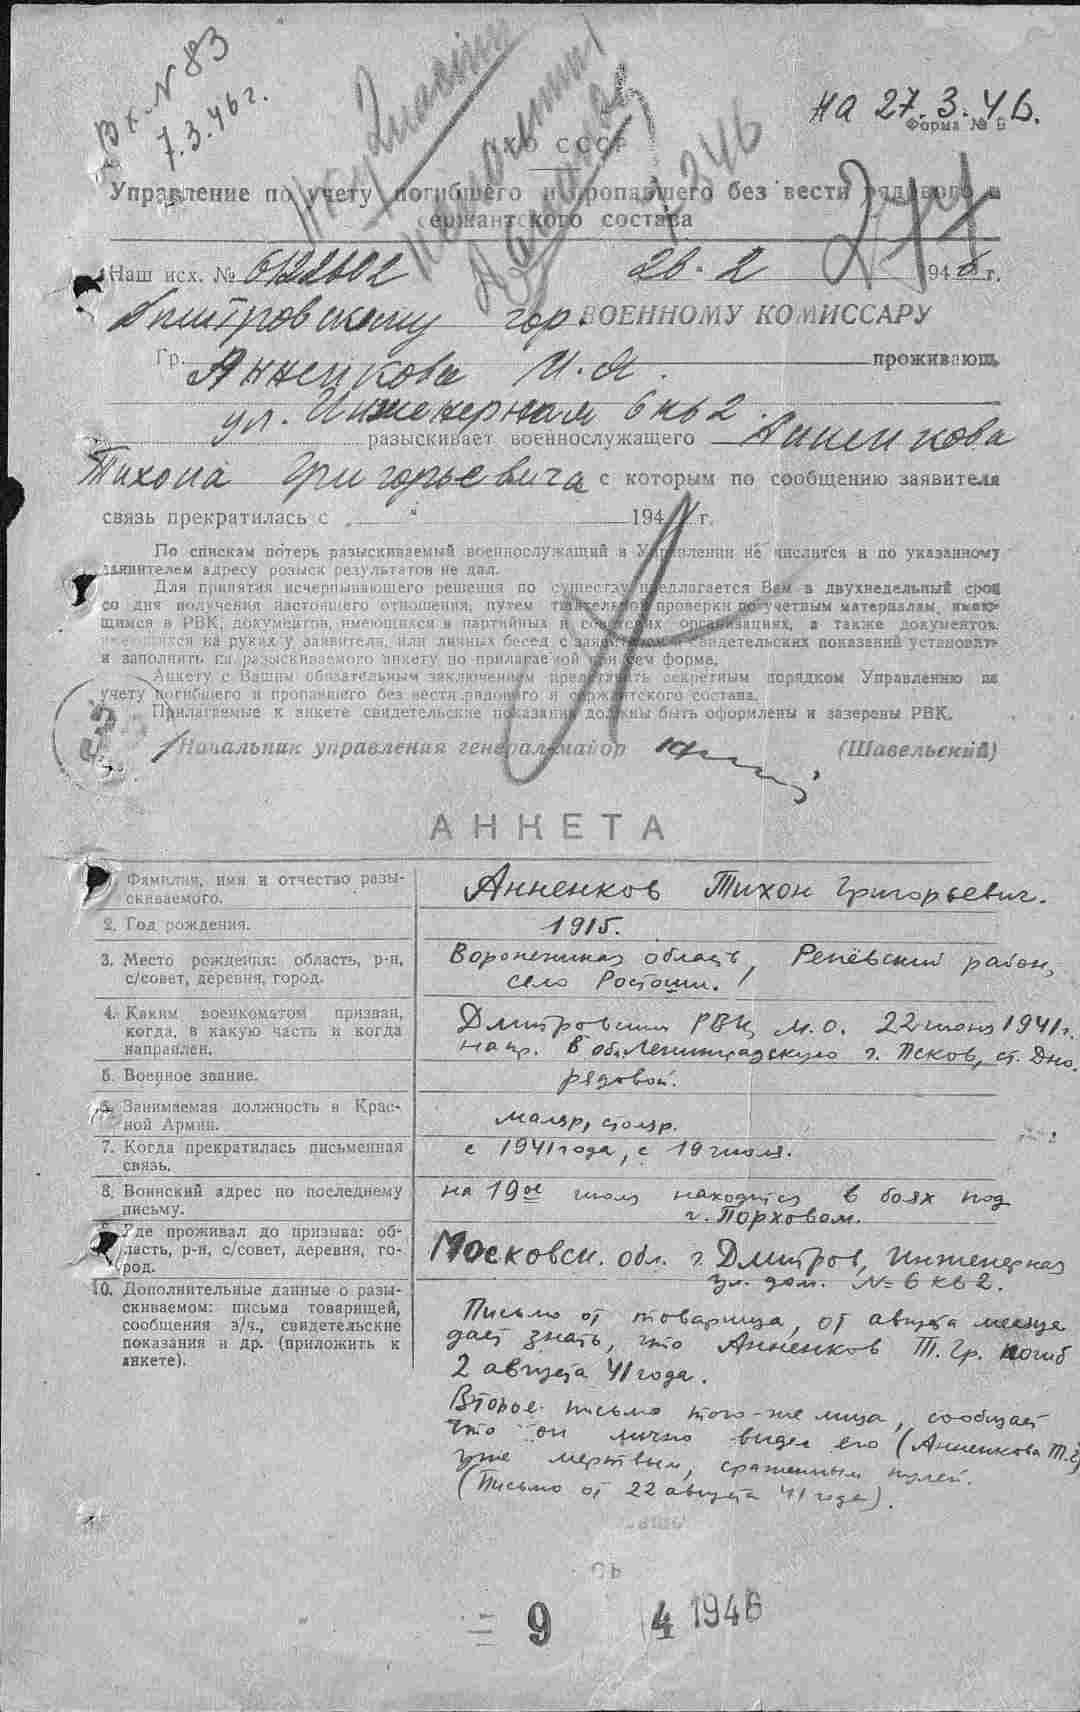 Вх. N 83
7.3.46 г.
на 27.3.46.
Форма № Б
НКО СССР
Управление по учету погибшего и пропавшего без вести рядового и
сержантского состава
Наш исх. №
26.2 1946 г.
Дмитровскому гор. ВОЕННОМУ КОМИССАРУ
Гр. Анненкова И.Я. проживающ.
ул. Инженерная 6 кв 2.
разыскивает военнослужащего Анненкова
Тихона Григорьевича с которым по сообщению заявителя
связь прекратилась с „ “ 194 г.
По спискам потерь разыскиваемый военнослужащий в Управлении не числится и по указанному
заявителем адресу розыск результатов не дал.
Для принятия исчерпывающего решения по существу предлагается Вам в двухнедельный срок
со дня получения настоящего отношения, путем тщательной проверки по учетным материалам, имею-
щимся в РВК, документов, имеющихся в партийных и советских организациях, а также документов,
имеющихся на руках у заявителя, или личных бесед с заявителем и свидетельских показаний установить
и заполнить на разыскиваемого анкету по прилагаемой при сем форме.
Анкету с Вашим обязательным заключением представить секретным порядком Управлению по
учету погибшего и пропавшего без вести рядового и сержантского состава.
Прилагаемые к анкете свидетельские показания должны быть оформлены и заверены РВК.
Начальник управления генерал-майор (Шавельский)
АНКЕТА
Фамилия, имя и отчество разы-
скиваемого.
Анненков Тихон Григорьевич.
2. Год рождения.
1915.
3. Место рождения: область, р-н,
с/совет, деревня, город.
Воронежская область, Репёвский район,
село Росташи.
4. Каким военкоматом призван,
когда, в какую часть и когда
направлен.
Дмитровским РВК, М.О. 22 июня 1941 г.
напр. в об. Ленинградскую г. Псков, ст. Дно.
5. Военное звание.
рядовой.
6. Занимаемая должность в Крас-
ной Армии.
маляр, столяр.
7. Когда прекратилась письменная
связь.
с 1941 года, с 19 июля.
8. Воинский адрес по последнему
письму.
на 19ое июля находится в боях под
г. Порховом.
9. Где проживал до призыва: об-
ласть, р-н, с/совет, деревня, го-
род.
Московск. обл. г. Дмитров, Инженерная
ул. дом. № 6 кв 2.
10. Дополнительные данные о разы-
скиваемом: письма товарищей,
сообщения э/ч., свидетельские
показания и др. (приложить к
анкете).
Письмо от товарища, от августа месяца
дает знать, что Анненков Т. Гр. погиб
2 августа 41 года.
Второе письмо того-же лица, сообщает
что он лично видел его (Анненкова Т.Г)
уже мертвым, сраженным пулей.
(Письмо от 22 августа 41 года).
9 4 1946